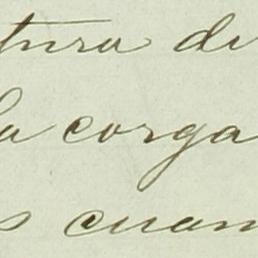 tura de
la corga
s cuan